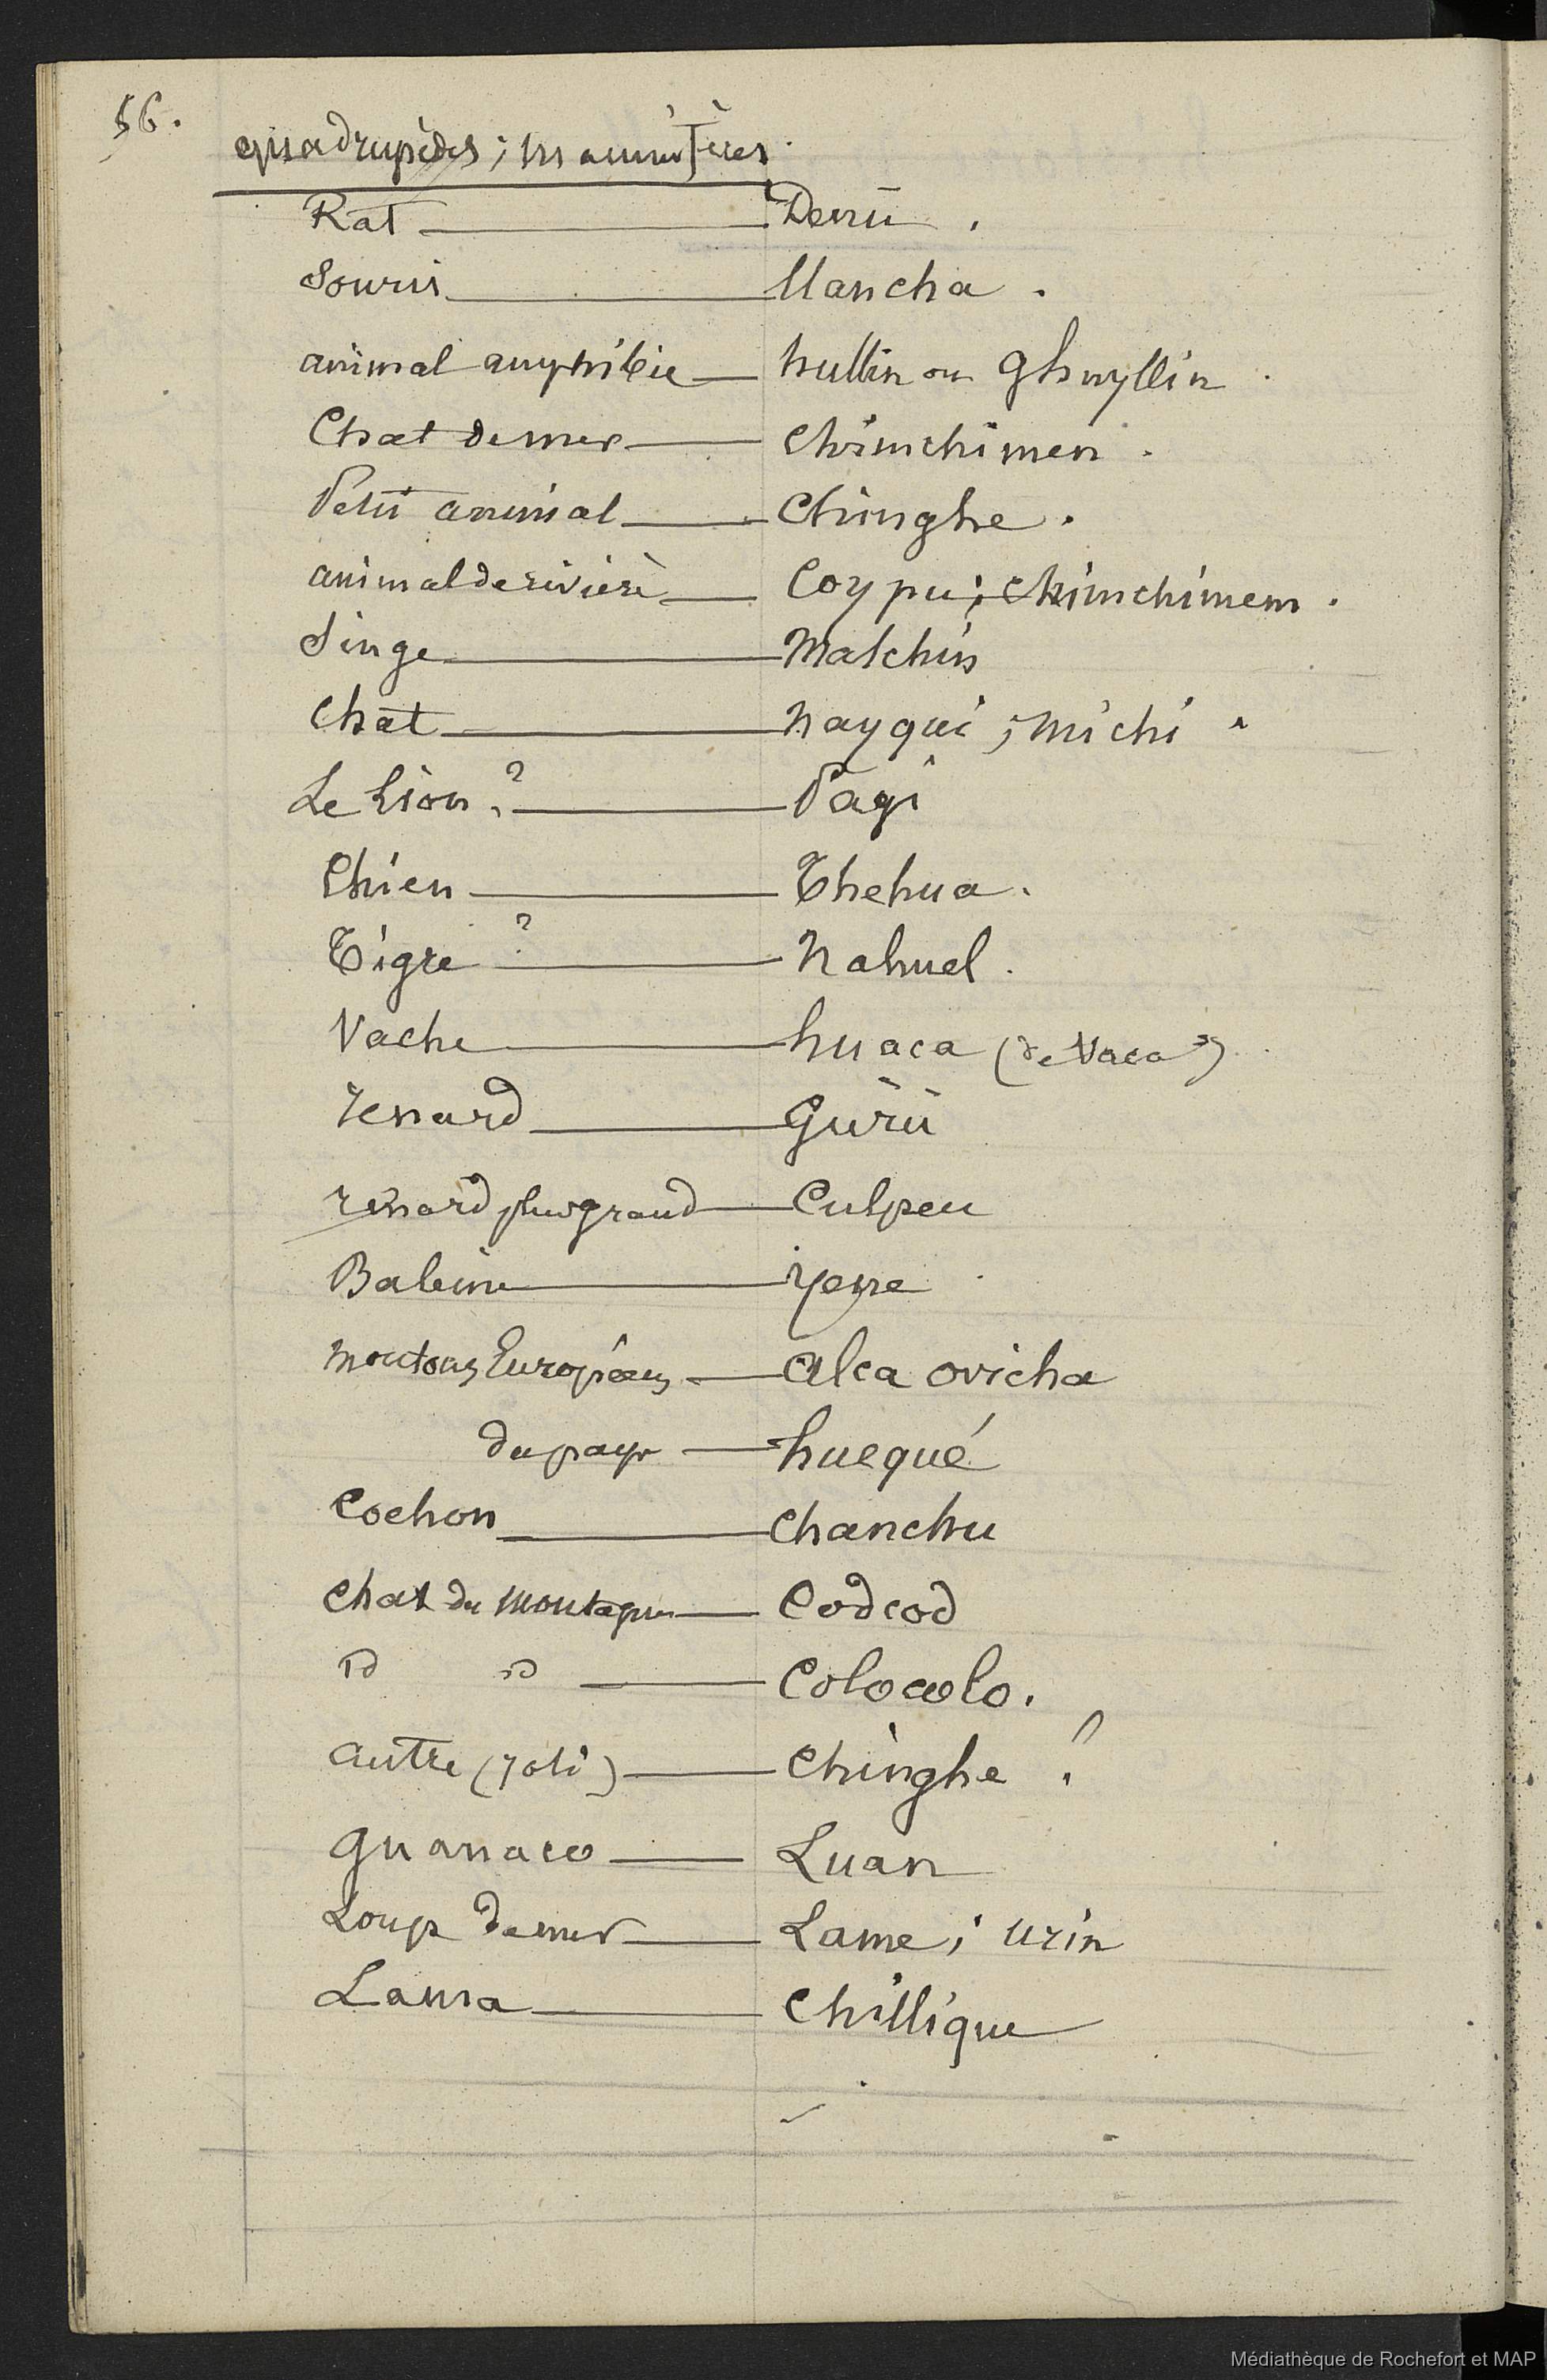 56.
quadrupèdes ; mammifères.
Rat — Derrü .
Souris — llancha .
animal amphibie — hullin ou ghuyllin .
Chat de mer — Chimchimen .
Petit animal — Chinghe .
animal de rivière — Coypu ; chimchimem .
Singe — Malchin
Chat — nayqui ; michi .
Le Lion ? — Pagi
Chien — Thehua .
Tigre ? — Nahuel .
Vache — huaca (de Vaca)
renard — Gürü
renard plus grand — Culpeu
Baleine — yene
moutons Européens — alca ovicha
du pays — huequé
Cochon — chanchu
chat du montagne — Codcod
id id — Colocolo .
autre (joli) — Chinghe ?
guanaco — Luan
Loup de mer — Lame ; urin
Lama — Chillique
Médiathèque de Rochefort et MAP